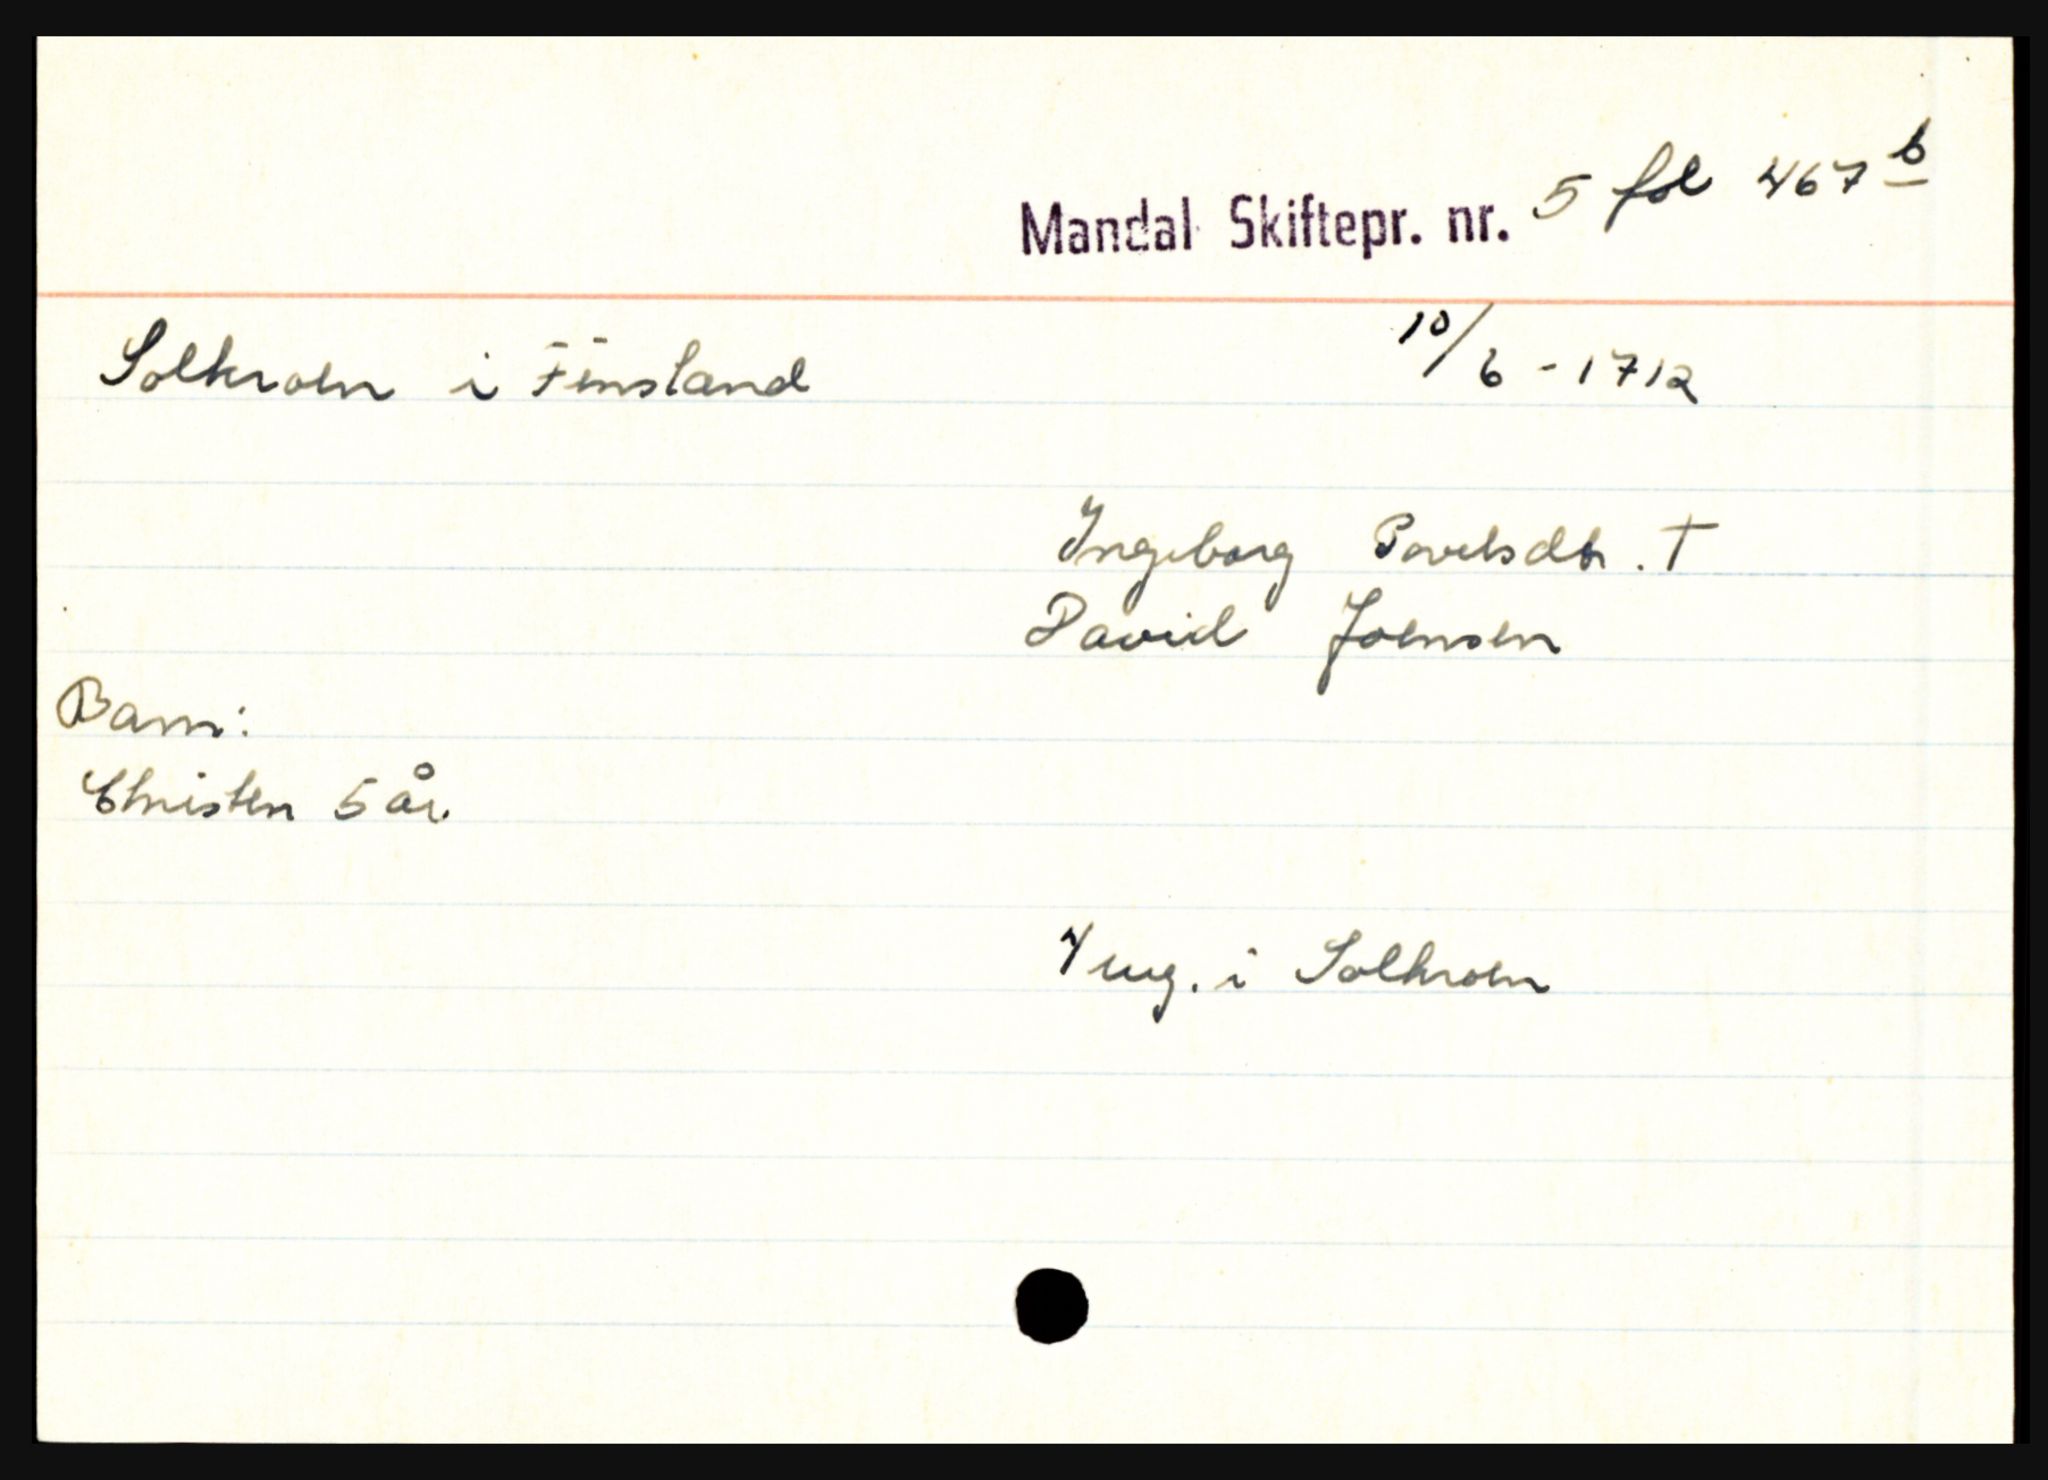 Mandal Skiftepr. nr. 5 fol 467 b
Solkroen i Finsland 10/6 - 1712
Ingeborg Povelsdtr. †
David Joensen
Barn:
Christen 5 år.
4 eng. i Solkroen